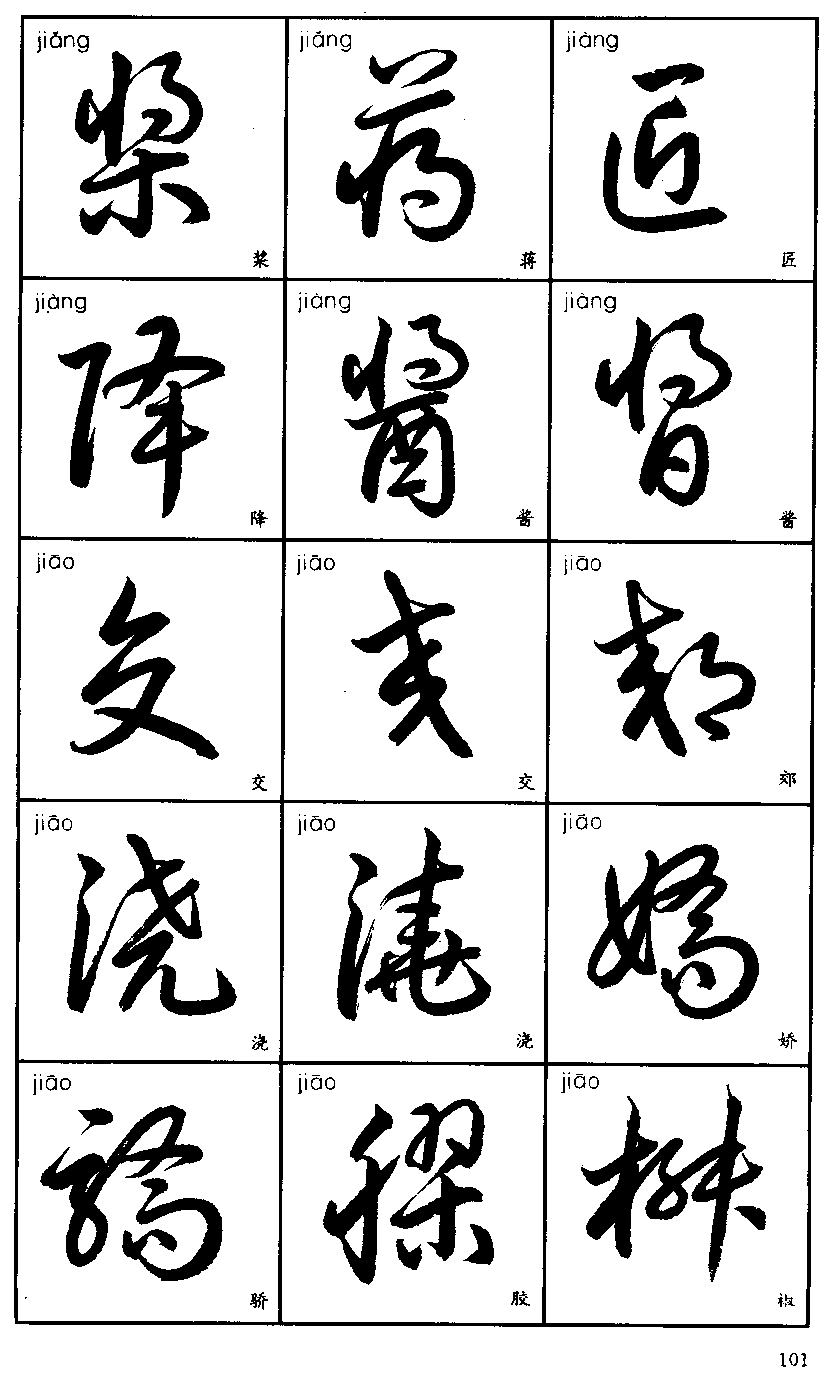 jiǎng jiǎng jiàng
桨 蒋 匠
桨 蒋 匠
jiàng jiàng jiàng
降 醬 酱
降 酱 酱
jiāo jiāo jiāo
交 交 郊
交 交 郊
jiāo jiāo jiāo
浇 澆 嬌
浇 浇 娇
jiāo jiāo jiāo
驕 膠 椒
骄 胶 椒
101